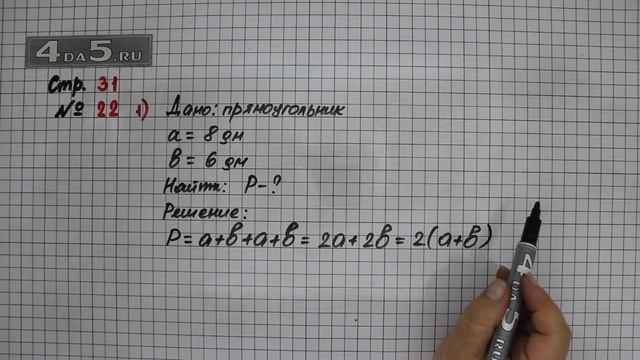 4DA5.RU
Стр. 31
№ 22 1) Дано: прямоугольник
a = 8 дм
b = 6 дм
Найти: P - ?
Решение:
P = a + b + a + b = 2a + 2b = 2(a + b)
4DA5.RU